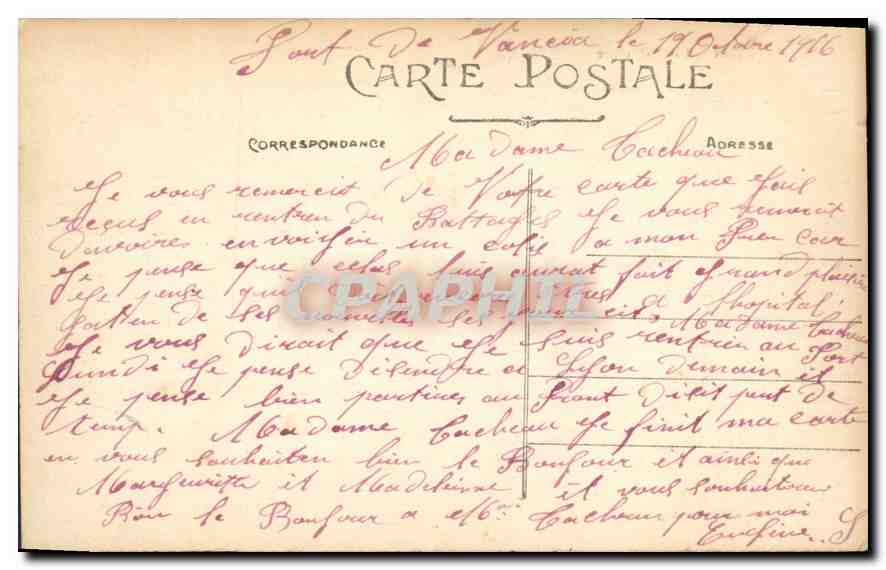 Fort de Vancia le 19 Octobre 1916
CARTE POSTALE
CORRESPONDANCE
ADRESSE
Madame Cacheau
Je vous remercit de Votre carte que Jais
recus en rentren du Je vous remercit
un colis a mon Frer car
Je pense que celas luis aurat fait Grand plaisire
Je pense que a lhopital
de ses nouvelles ces Madame Cacheau
Je vous dirait que Je suis rentrin au Fort
Lundi Je pense disendre a Lyon demain it
Je pense bien partire au Front disit peut de
temp. Madame Cacheau Je finit ma carte
en vous souhaiten bien le Bonjour it ainsi que
Margueritte it Madeleine it vous souhaiteres
Bon le Bonjour a Mr Cacheau pour moi
CPAPHIL